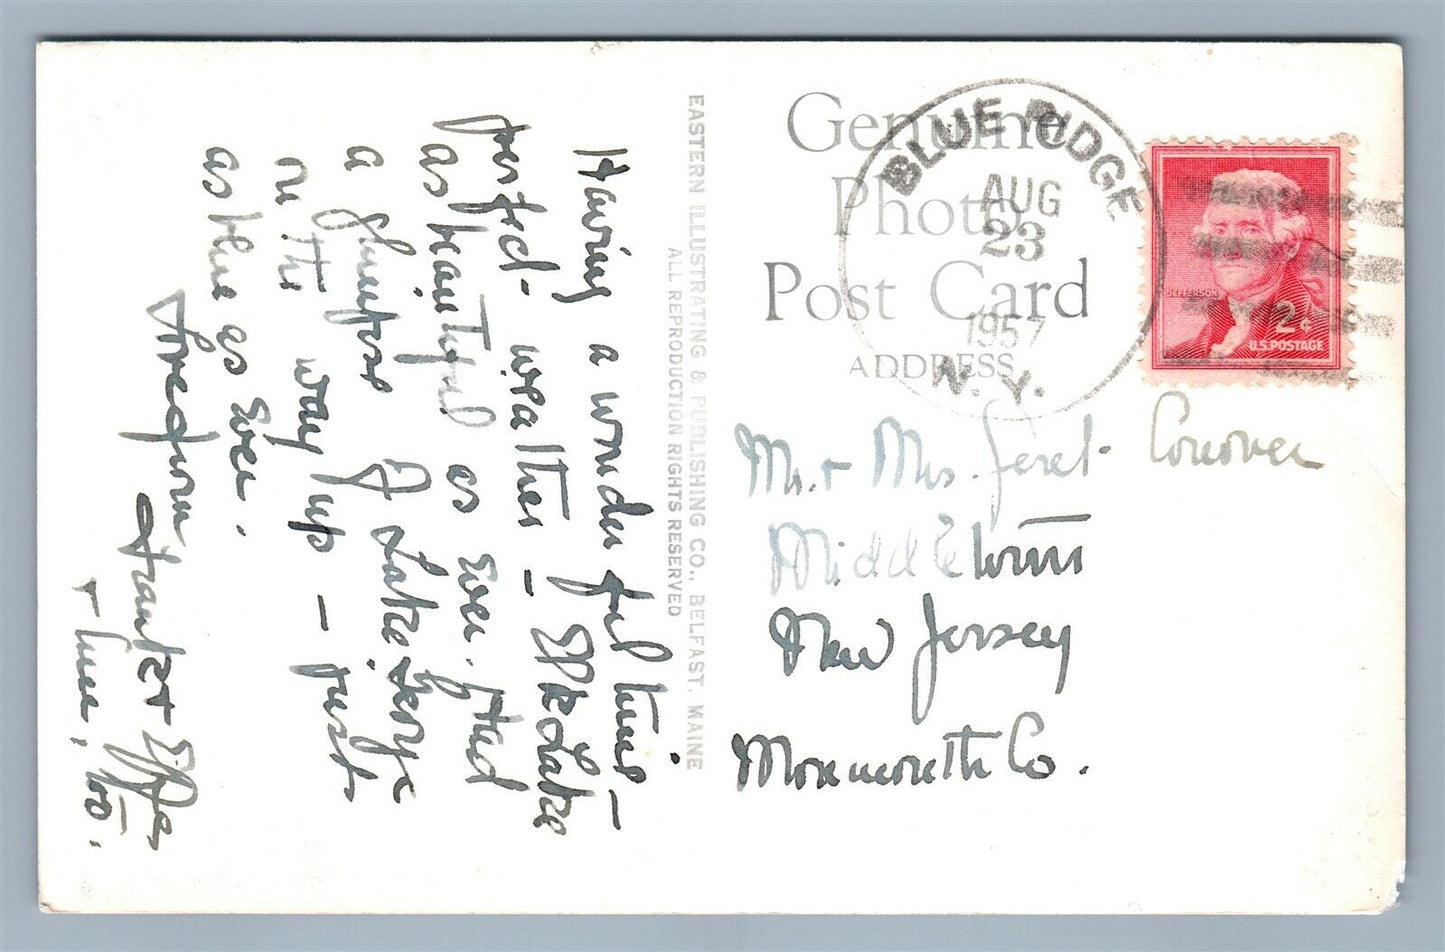 Having a wonderful time -
perfect weather - Elk Lake
as beautiful as ever. Had
a glimpse of Lake George
on the way up - just
as blue as ever.
Love from
+ June, too.
EASTERN ILLUSTRATING & PUBLISHING CO., BELFAST, MAINE
ALL REPRODUCTION RIGHTS RESERVED
Genuine
Photo
Post Card
ADDRESS
BLUE RIDGE
AUG
23
1957
N.Y.
JEFFERSON
2¢
U.S. POSTAGE
Mr. + Mrs. Conover
Middletown
New Jersey
Monmouth Co.